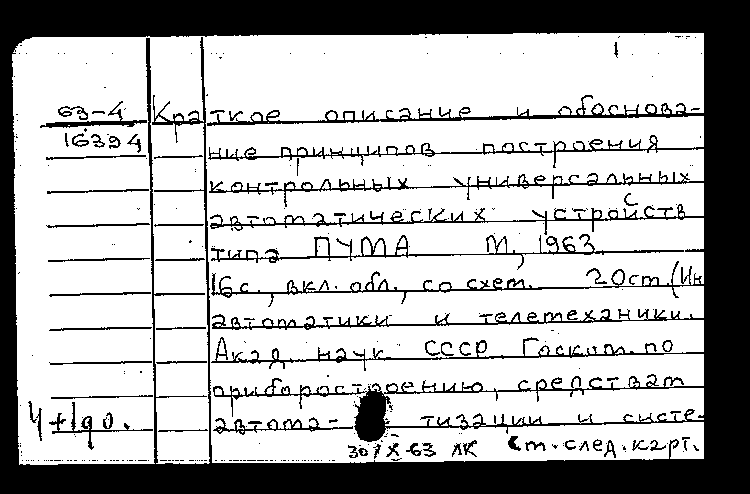 1
63-4 Краткое описание и обоснова-
16394 ние принципов построения
контрольных универсальных
автоматических устройств
типа ПУМА М., 1963.
16 с., вкл. обл., со схем. 20 см. (Ин
автоматики и телемеханики.
Акад. наук СССР. Госком. по
приборостроению, средствам
4+1 до. автома- тизации и систе-
30/X-63 ЛК См. след. карт.